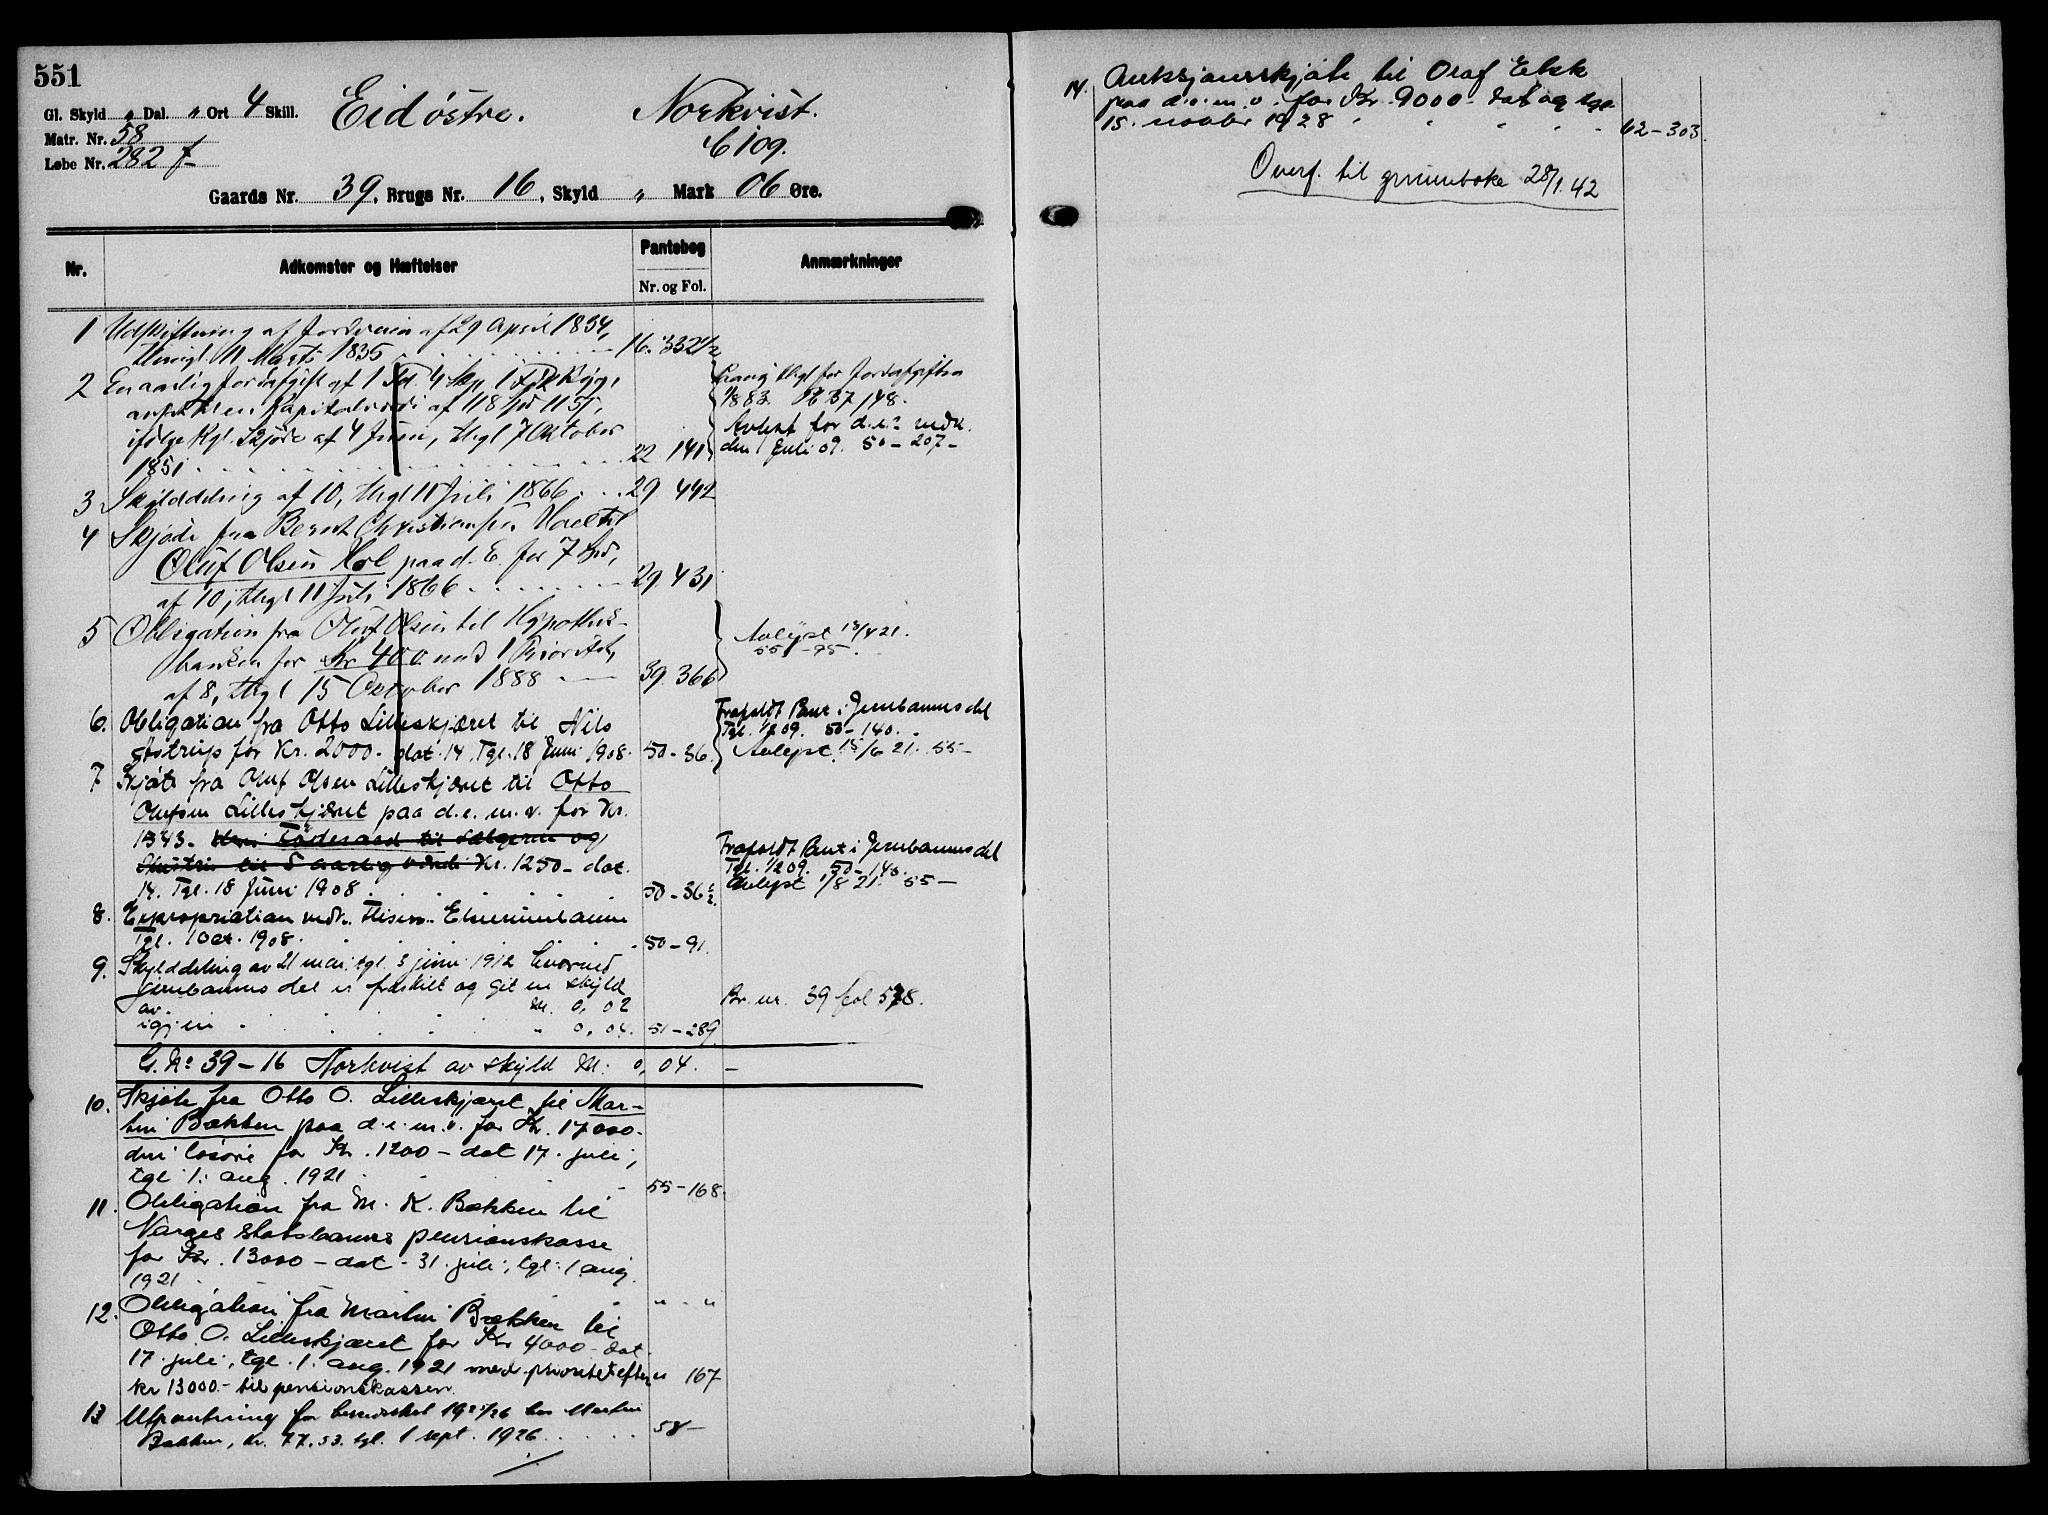 551
Gl. Skyld " Dal. " Ort 4 Skill. Eid østre. Norkvist.
Matr. Nr. 58 6109.
Løbe Nr. 282 f
Gaards Nr. 39, Brugs Nr. 16, Skyld " Mark 06 Øre.
Nr. Adkomster og Hæftelser Pantebog Anmærkninger
Nr. og Fol.
1 Udskiftning af Jordveien af 29 April 1834,
thingl. 11 Marts 1835 16. 332 1/2
2 En aarlig Jordafgift af 1 Td. 4 Skp. 1 Fdk Byg,
anført til en Kapitalværdi af 118 Spd 115 ,
ifølge Kgl. Skjøde af 4 Juni, thgl 7 Oktober
1851 22 141
thgl for Jordafgiften
1/8 83. 37/148.
Avløst for d. e. s vedk.
den 1 Juli 09. 50-207-
3 Skylddeling af 10, thgl 11 Juli 1866 29 442
4 Skjøde fra Bernt Christiansen Hoel til
Oluf Olsen Hol paa d. E. for 7 Spd,
af 10, thgl 11 Juli 1866 29. 431
5 Obligation fra Oluf Olsen til Hypothek-
banken for Kr 400 med 1 Prioritet,
af 8, thgl 15 Oktober 1888 39. 366
Avlyst 13/4 21.
55-95.
6. Obligation fra Otto Lilleskjæret til Nils
Søstrup for Kr. 2000- dat. 14. Tgl. 18 Juni 1908. 50-36.
Frafaldt Pant i Jernbanens del
Tgl. 1/2 09. 50-140.
Avlyst 15/6 21. 55-
7 Skjøte fra Oluf Olsen Lilleskjæret til Otto
Olufsen Lilleskjæret paa d. e. m. v. for Kr.
1343. Føderaad til sælgeren og
Hustru til 5 aarlig værdi Kr. 1250- dat.
14. Tgl. 18 Juni 1908. 50-36 1/2.
Frafaldt Pant i Jernbanens del
Tgl. 1/2 09. 50-140.
Avlyst 1/8 21. 55-
8. Expropriation vedk. Flisen-Elverumbanen
Tgl. 1 Oct. 1908. 50-91.
9. Skylddeling av 21 mai, tgl. 3 juni 1912 hvorved
Jernbanens del er fraskilt og git en skyld
av M. 0,02
igjen " 0,04. 51-289
Br. nr. 39 fol 578.
G. No 39-16 Norkvist av skyld M: 0,04. -
10. Skjøte fra Otto O. Lilleskjæret til Mar-
tin Bækken paa d. e. m. v. for Kr. 17000-
den løsøre for Kr. 1200- dat 17. juli,
tgl 1. aug. 1921 55-168.
11. Obligation fra M. K. Bækken til
Norges Statsbaners pensionskasse
for Kr. 13000- dat. 31. juli, tgl. 1 aug.
1921 " - "
12. Obligation fra Martin Bækken til
Otto O. Lilleskjæret for Kr 4000- dat
17. juli, tgl. 1. aug. 1921 med prioritet efter
kr 13000.- til pensionskassen. " 167
13 Utpantning for herredsskat 1925/26 hos Martin
Bækken, kr. 77.53. tgl. 1 sept. 1926 58-
14. Auksjonsskjøte til Olaf Ebsk
paa d. e. m. v. for Kr. 9000- dat og tgl.
15. novbr 1928 62-303.
Overf. til grunnboka 28/1. 42